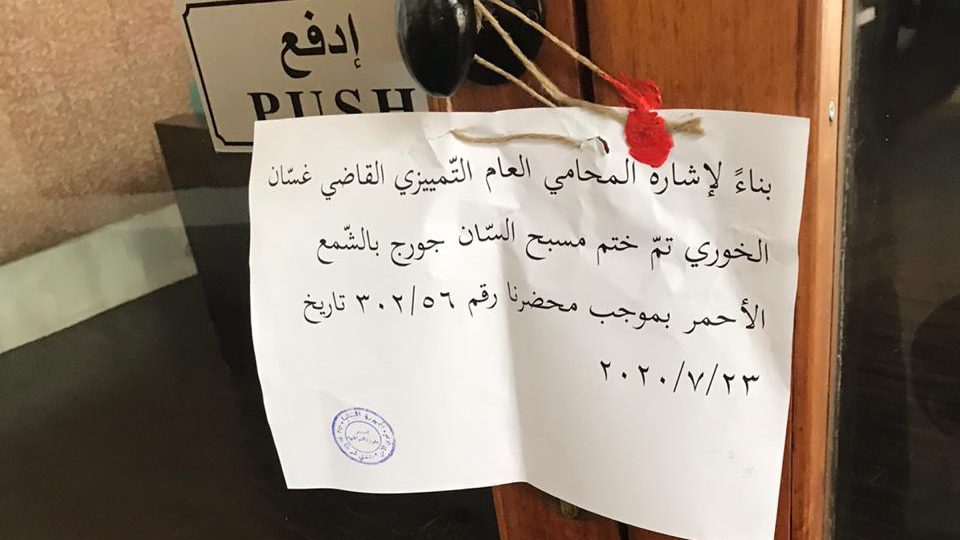 إدفع
PUSH
بناءً لإشارة المحامي العام التّمييزي القاضي غسّان
الخوري تمّ ختم مسبح السّان جورج بالشّمع
الأحمر بموجب محضرنا رقم ٣٠٢/٥٦ تاريخ
٢٠٢٠/٧/٢٣